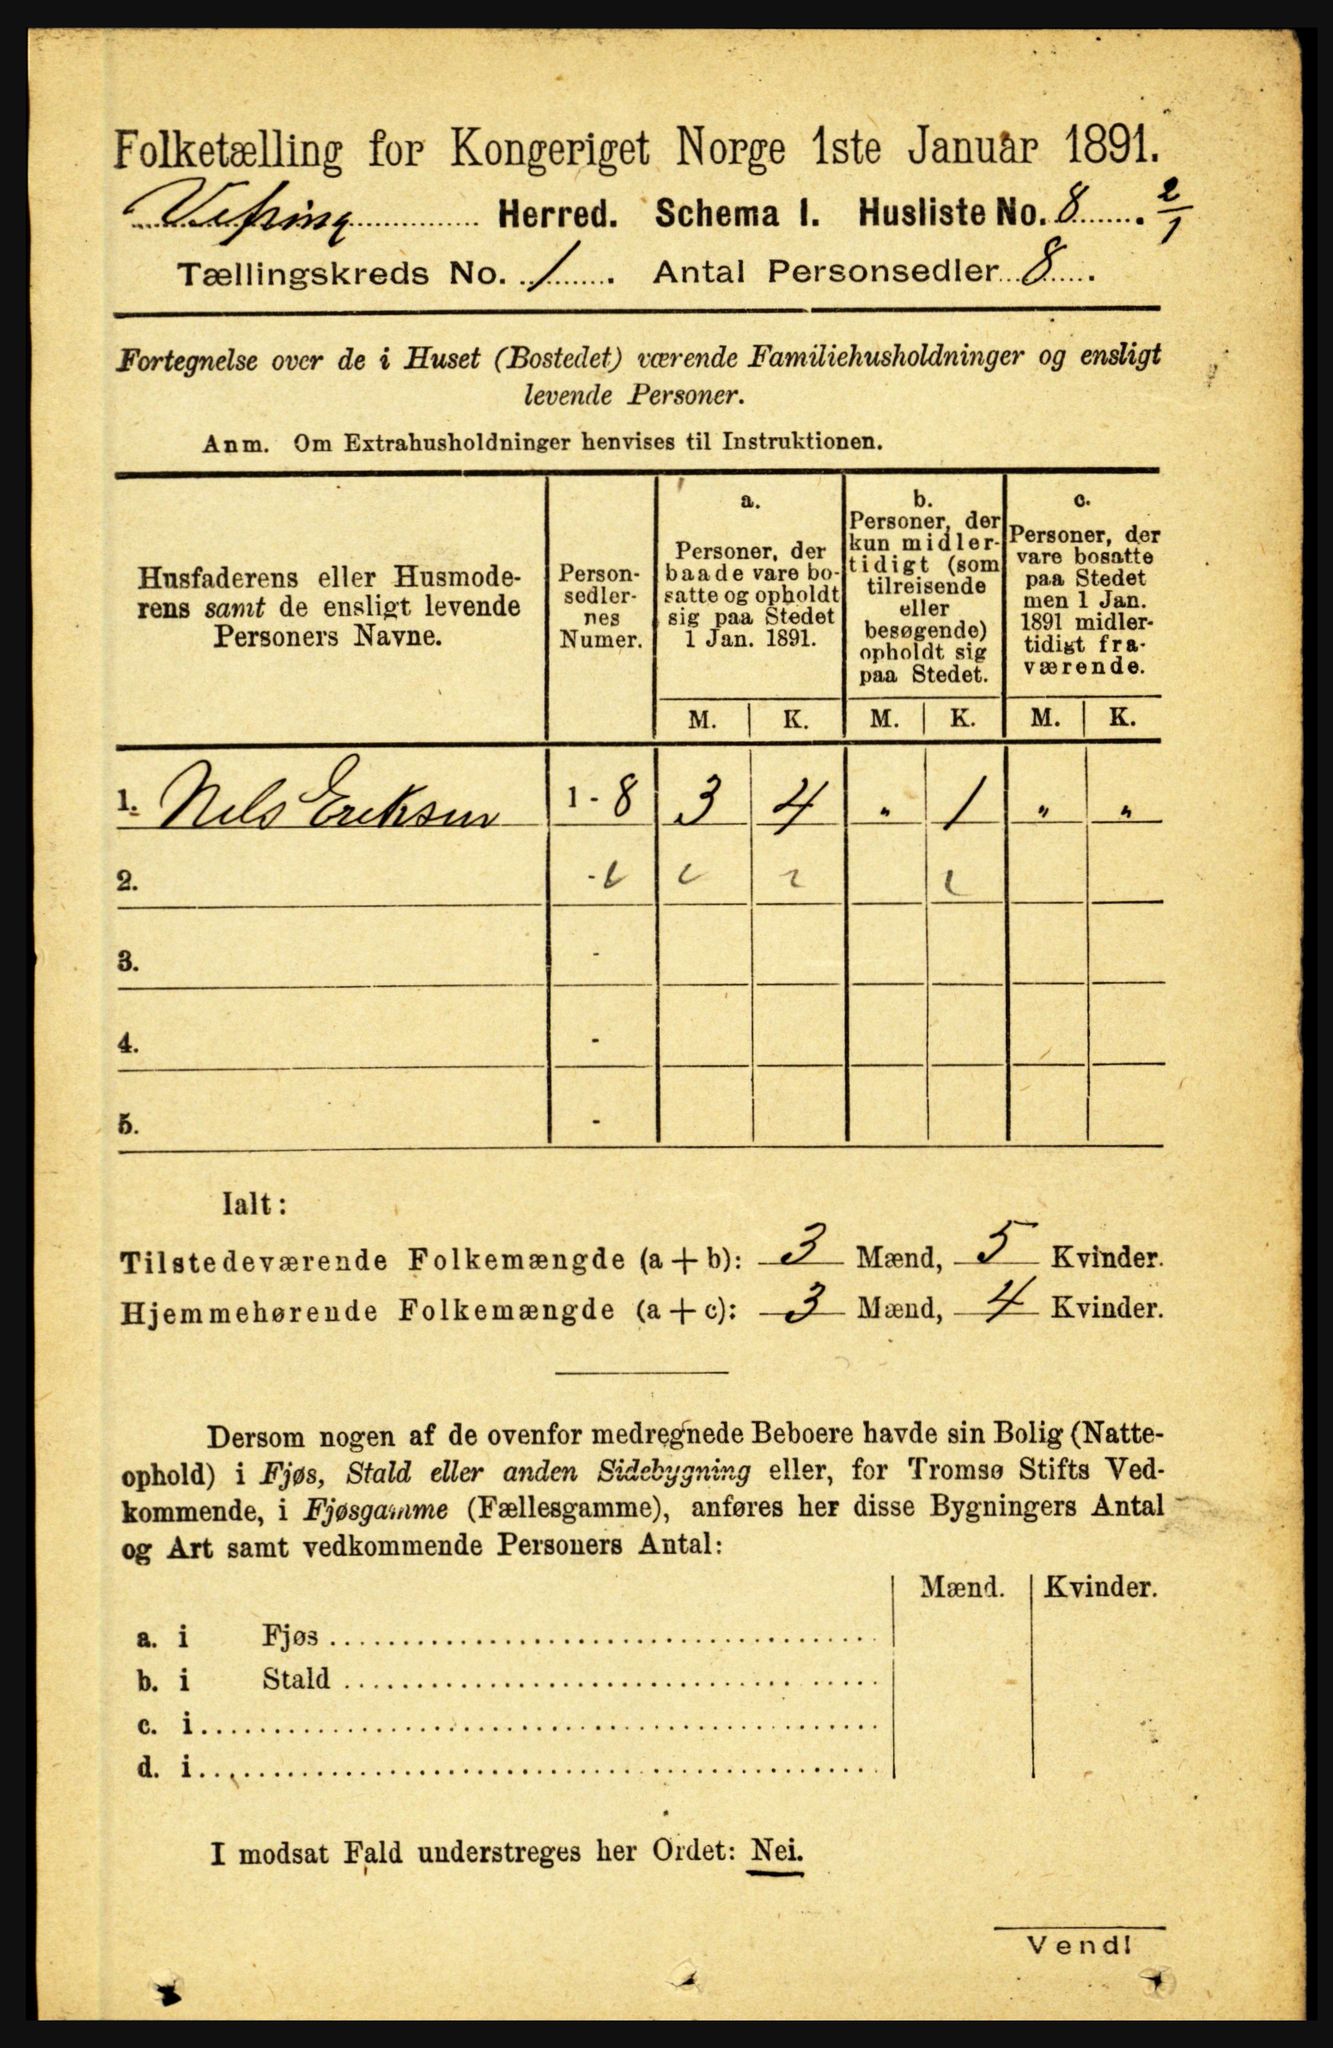 Folketælling for Kongeriget Norge 1ste Januar 1891.
Vefsn Herred. Schema I. Husliste No. 8. 2/1
Tællingskreds No. 1. Antal Personsedler 8.
Fortegnelse over de i Huset (Bostedet) værende Familiehusholdninger og ensligt
levende Personer.
Anm. Om Extrahusholdninger henvises til Instruktionen.
Husfaderens eller Husmode-
rens samt de ensligt levende
Personers Navne.
Person-
sedler-
nes
Numer.
a.
Personer, der
baade vare bo-
satte og opholdt
sig paa Stedet
1 Jan. 1891.
b.
Personer, der
kun midler-
tidigt (som
tilreisende
eller
besøgende)
opholdt sig
paa Stedet.
c.
Personer, der
vare bosatte
paa Stedet
men 1 Jan.
1891 midler-
tidigt fra-
værende.
M. K. M. K. M. K.
1. Nils Eriksen 1 - 8 3 4 " 1 " "
2. -
3. -
4. -
5. -
Ialt:
Tilstedeværende Folkemængde (a + b): 3 Mænd, 5 Kvinder.
Hjemmehørende Folkemængde (a + c): 3 Mænd, 4 Kvinder.
Dersom nogen af de ovenfor medregnede Beboere havde sin Bolig (Natte-
ophold) i Fjøs, Stald eller anden Sidebygning eller, for Tromsø Stifts Ved-
kommende, i Fjøsgamme (Fællesgamme), anføres her disse Bygningers Antal
og Art samt vedkommende Personers Antal:
Mænd. Kvinder.
a. i Fjøs
b. i Stald
c. i
d. i
I modsat Fald understreges her Ordet: Nei.
Vend!